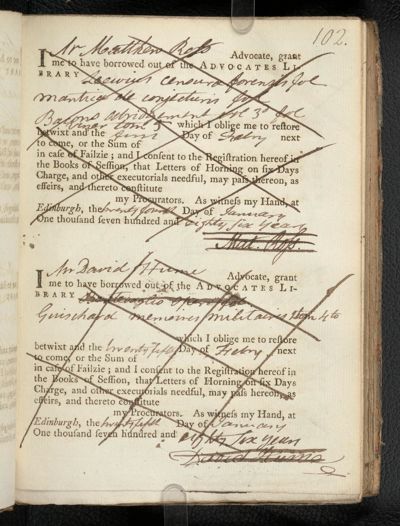 102.
I Mr Matthew Ross Advocate, grant
me to have borrowed out of the ADVOCATES LI-
BRARY Leewius censura forensis fol
mantica de conjecturis fol
Bacons abridgement vol 3d fol
which I oblige me to restore
betwixt and the Day of Febry next
to come, or the Sum of
in case of Failzie; and I consent to the Registration hereof in
the Books of Session, that Letters of Horning on six Days
Charge, and other executorials needful, may pass thereon, as
effeirs, and thereto constitute
my Procurators. As witness my Hand, at
Edinburgh, the twenty fourth Day of January
One thousand seven hundred and eighty six years
Matt. Ross.
I Mr David Hume Advocate, grant
me to have borrowed out of the ADVOCATES LI-
BRARY
Guischard memoires militaires 4to
which I oblige me to restore
betwixt and the twenty fifth Day of Febry next
to come, or the Sum of
in case of Failzie; and I consent to the Registration hereof in
the Books of Session, that Letters of Horning on six Days
Charge, and other executorials needful, may pass hereon, as
effeirs, and thereto constitute
my Procurators. As witness my Hand, at
Edinburgh, the twenty fifth Day of January
One thousand seven hundred and eighty six years
David Hume